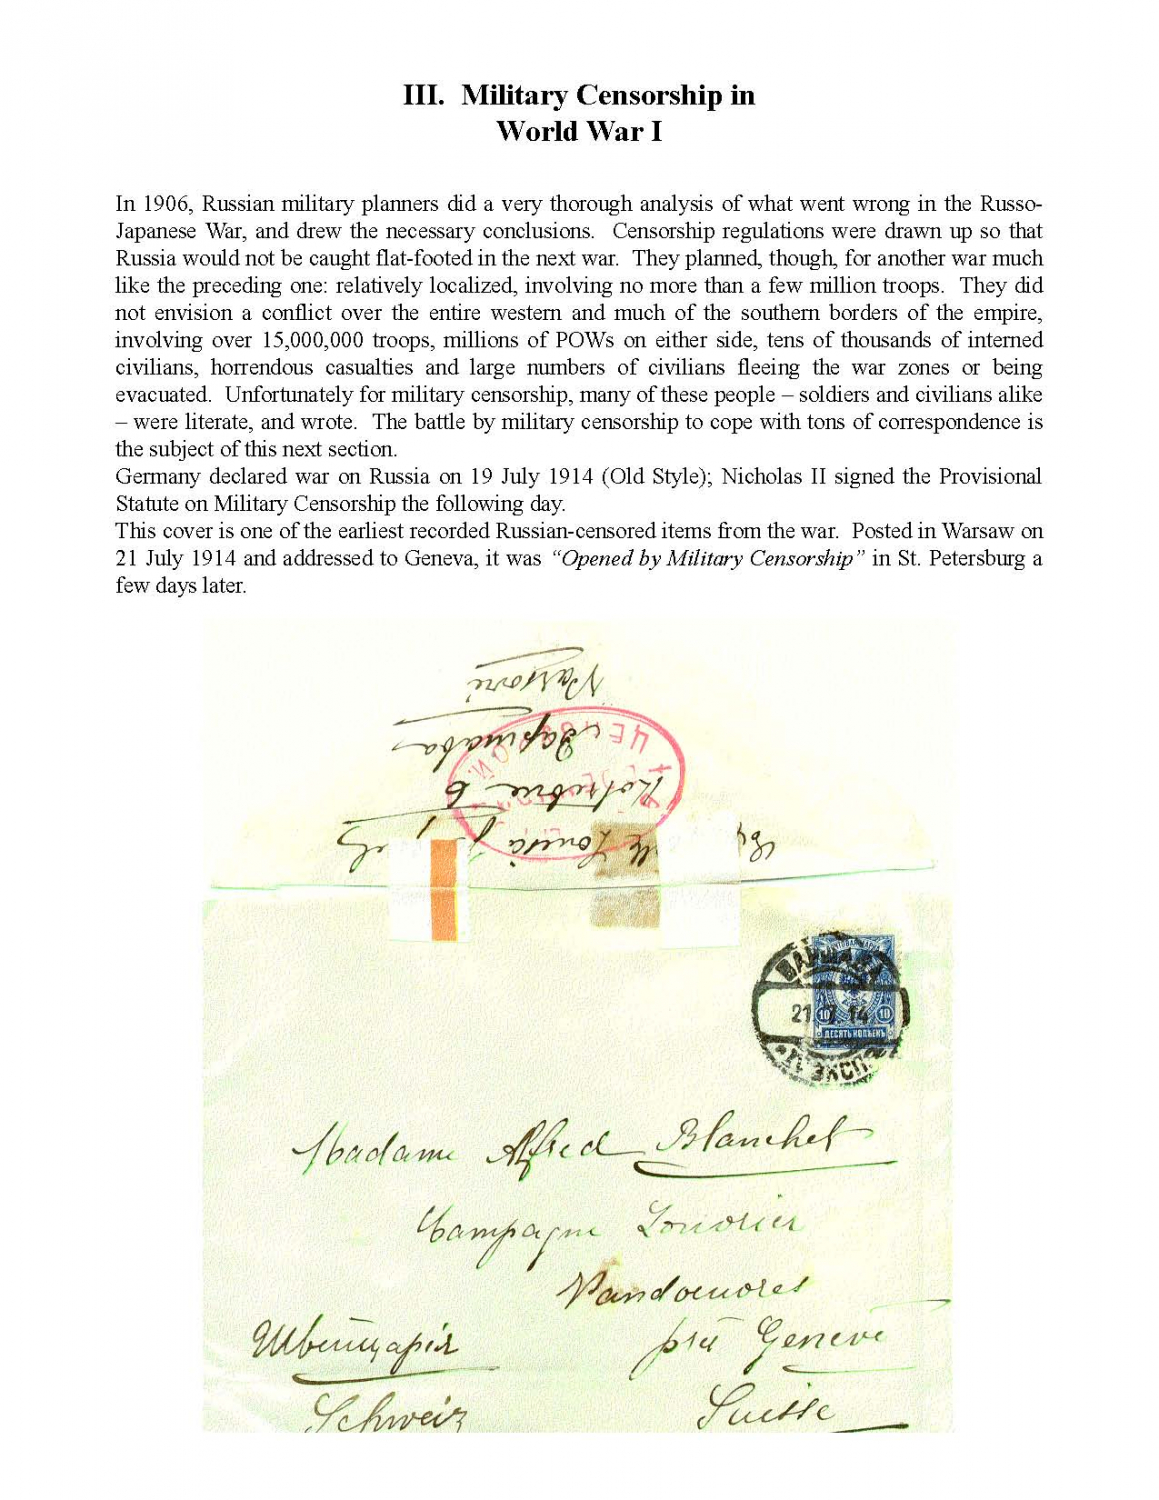 III. Military Censorship in
World War I
In 1906, Russian military planners did a very thorough analysis of what went wrong in the Russo-
Japanese War, and drew the necessary conclusions. Censorship regulations were drawn up so that
Russia would not be caught flat-footed in the next war. They planned, though, for another war much
like the preceding one: relatively localized, involving no more than a few million troops. They did
not envision a conflict over the entire western and much of the southern borders of the empire,
involving over 15,000,000 troops, millions of POWs on either side, tens of thousands of interned
civilians, horrendous casualties and large numbers of civilians fleeing the war zones or being
evacuated. Unfortunately for military censorship, many of these people – soldiers and civilians alike
– were literate, and wrote. The battle by military censorship to cope with tons of correspondence is
the subject of this next section.
Germany declared war on Russia on 19 July 1914 (Old Style); Nicholas II signed the Provisional
Statute on Military Censorship the following day.
This cover is one of the earliest recorded Russian-censored items from the war. Posted in Warsaw on
21 July 1914 and addressed to Geneva, it was “Opened by Military Censorship” in St. Petersburg a
few days later.
Варшава
ВАРШАВА
21 7 14
10 10
ДЕСЯТЬ КОПѢЕКЪ
ЭКСП.
Madame Alfred Blanchet
Campagne
Vandoeuvres
près Genève
Швейцарія
Suisse
Schweiz